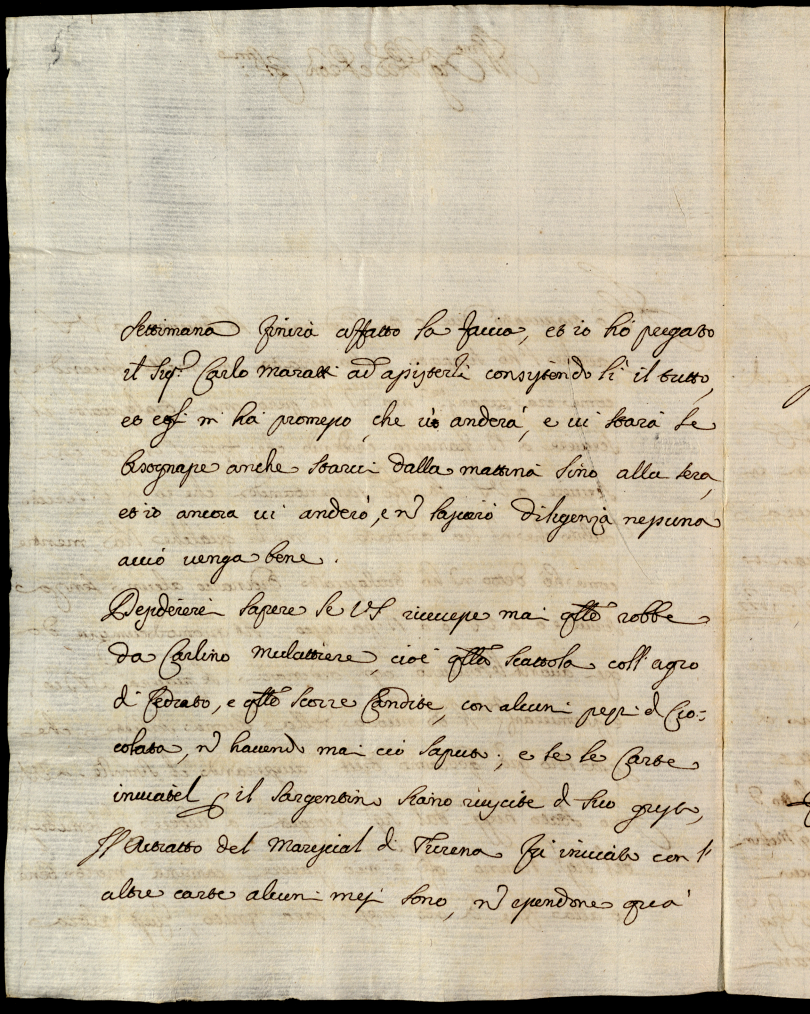 settimana finirà affatto la faccia, et io hò pregato
il Sigr. Carlo Maratti ad assisterli consistendo li il tutto,
et egli m' ha promesso, che vi anderà, e ui starà se
bisognasse anche starui dalla mattina sino alla sera,
et io ancora ui anderò, e nõ lascierò diligenza nessuna
acciò uenga bene.
Desidererei sapere se VS riceuesse mai qſte robbe
da Carlino mulattiere, cioè qſta scattola coll' agro
di Cedrato, e qſte scorze Candite, con alcuni pezzi d Cio:
colata, nõ hauendo mai ciò saputo; e se le Carte
inuiateli il Sargentino siano riuscite d suo gusto,
Il Ritratto del Marescial di Turena fù inuiato con l'
altre carte alcuni mesi sono, nõ essendone quà